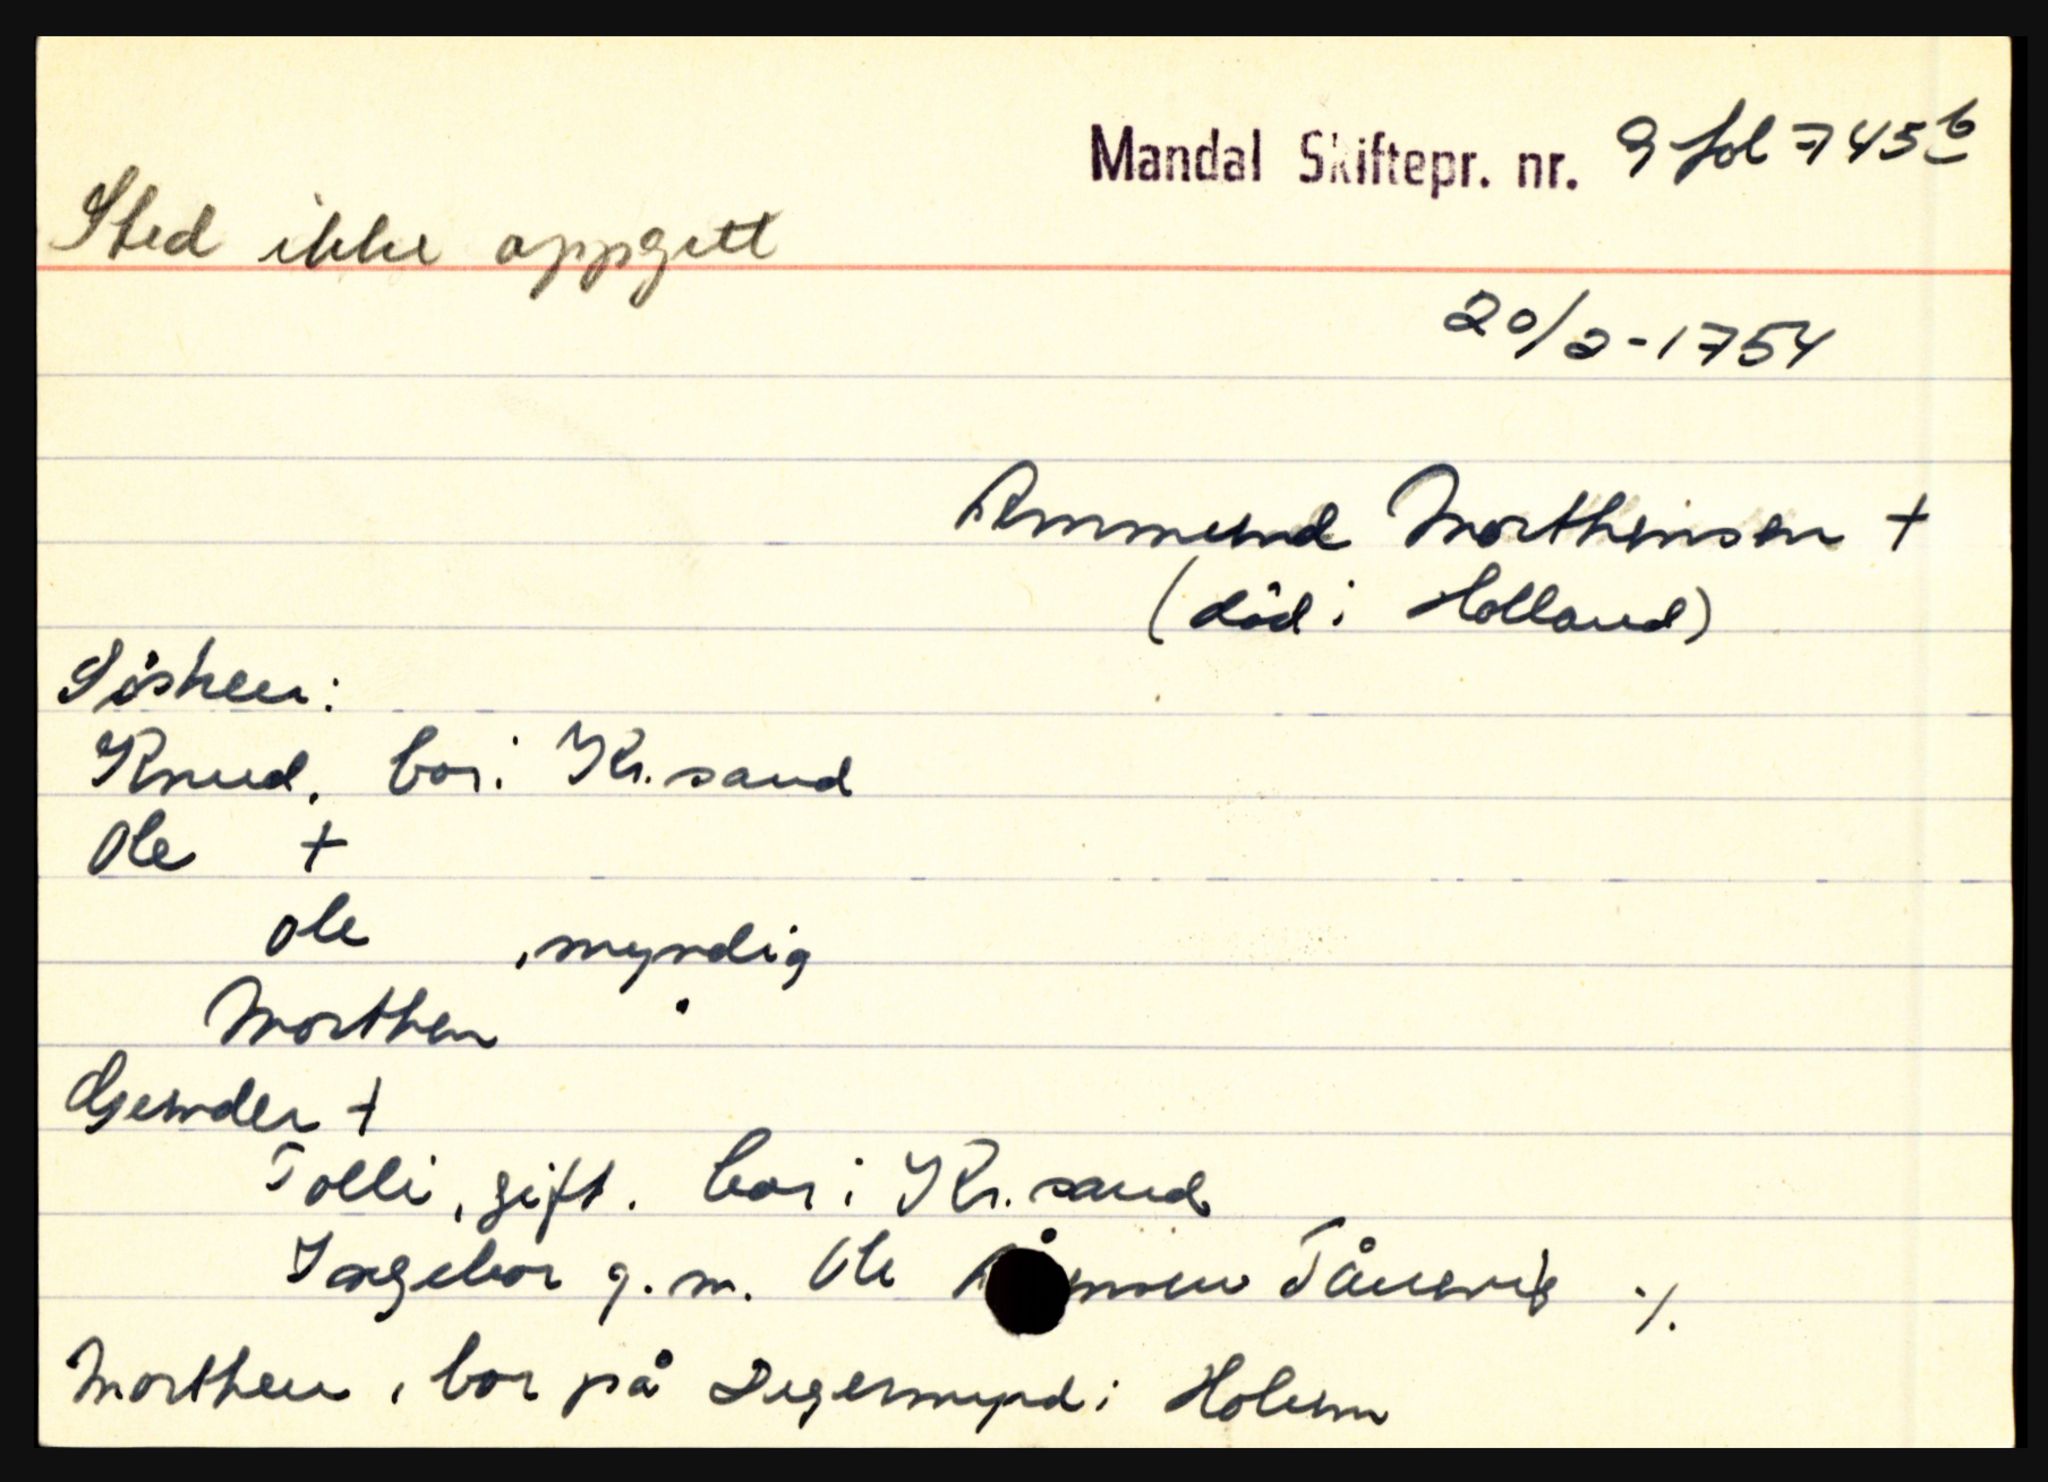 Mandal Skiftepr. nr. 9 fol 745b
Sted ikke oppgitt
20/2-1754
Ammund Morthensen +
(död i Holland)
Sösken:
Knud, bor i Kr.sand
Ole +
Ole , myndig
Morthen "
Gunder +
Tolli, gift. bor i Kr.sand
Ingebor g.m. Ole Tånevig ./.
Morthen, bor på Degermynd i Holum